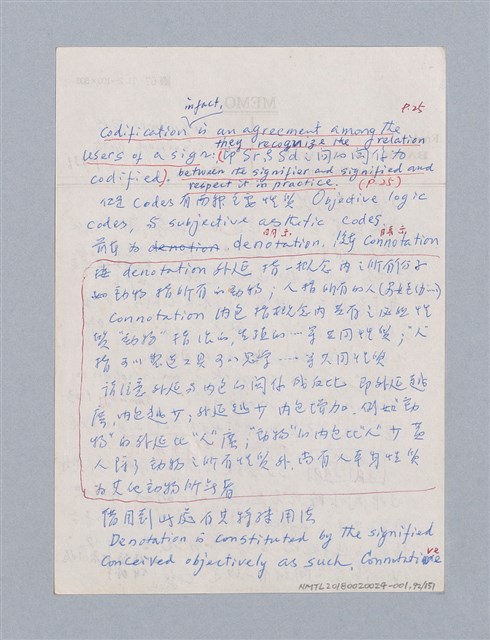 in fact,
P.25
Codification is an agreement among the
they recognize the relation
users of a sign: (即 Sr 與 Sd 之間的関係为
codified). between the signifier and signified and
respect it in practice. (P.25)
但是 Codes 有兩種主要性質 Objective logic
codes, 与 subjective aesthetic codes.
明示 暗示
前者为 denotion denotation. 後者 connotation
denotation 外延 指一概念内之所有分子
如 动物 指所有的动物; 人指所有的人
connotation 内包 指概念内共有之
質 "动物" 指 等共同性質; "人"
指可以製造工具可以思学……等共同性質
請注意 外延与内包的関係成反比 即外延越
廣, 内包越少; 外延越少 内包增加. 例如 "动
物" 的外延比 "人" 廣; "动物" 的内包比 "人" 少 蓋
人除了动物之所有性質外, 尚有人本身性質
为其他动物所無者
借用到此處有其特殊用法
Denotation is constituted by the signified
conceived objectively as such. Connotative
NMTL20180020024-001, 92/151